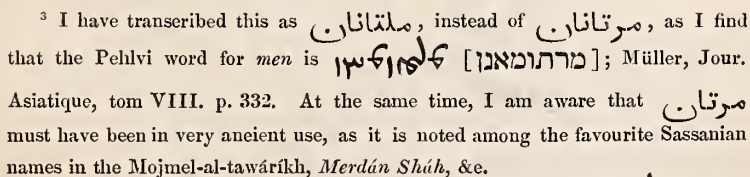 ³ I have transcribed this as ملتانان, instead of مرتانان, as I find
that the Pehlvi word for men is [מרתומאנן]; Müller, Jour.
Asiatique, tom VIII. p. 332. At the same time, I am aware that مرتان
must have been in very ancient use, as it is noted among the favourite Sassanian
names in the Mojmel-al-tawáríkh, Merdán Sháh, &c.